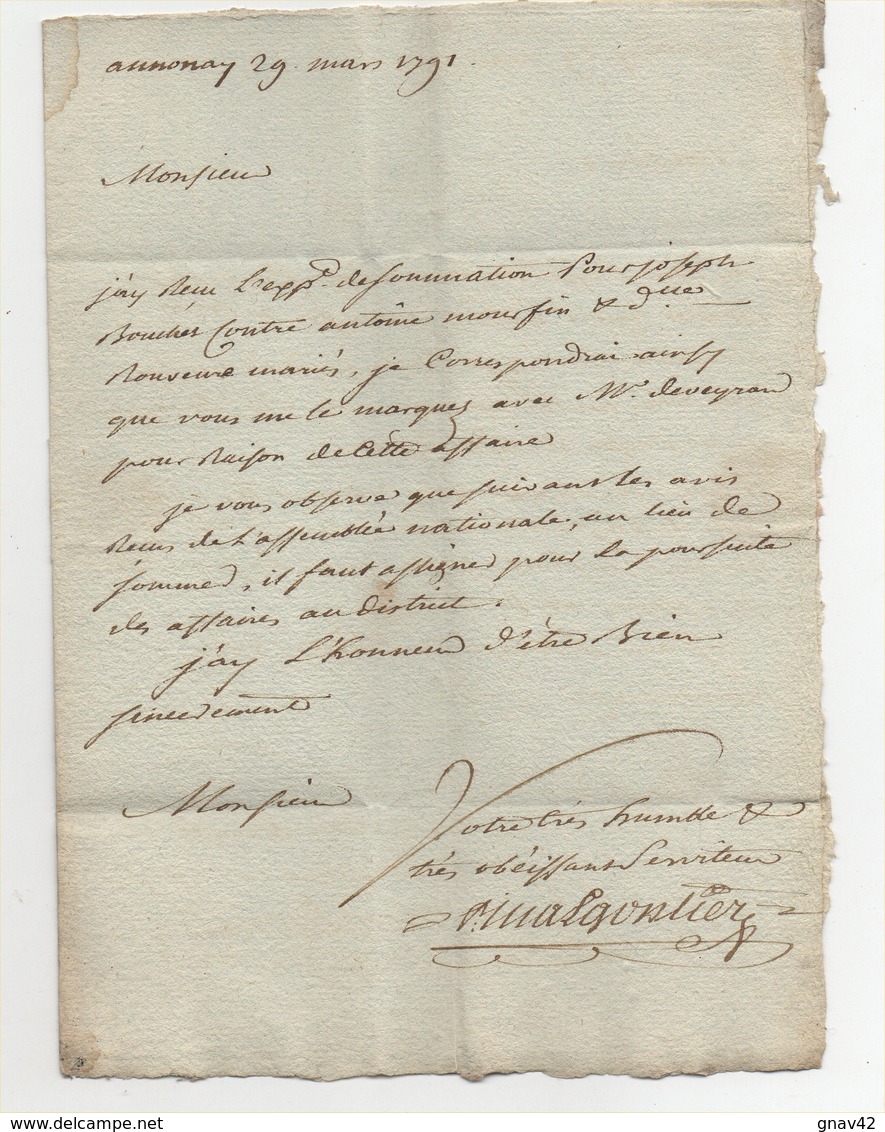 annonay 29 mars 1791.
Monsieur
j'ay Recu L'exp.on de sommation Pour joseph
Bouchet Contre antoine mourfin & d.lle
Rouveure mariés, je Correspondrai ainsy
que vous me le marquez avec Mr. deveyran
pour Raison de Cette affaire
je vous observe que suivant les avis
Recus de L'assemblée nationale, au lieu de
sommer, il faut assigner pour La poursuite
des affaires au district.
j'ay L'honneur d'être Bien
sincerement
Monsieur
Votre très humble &
très obéissant Serviteur
delcampe.net
gnav42